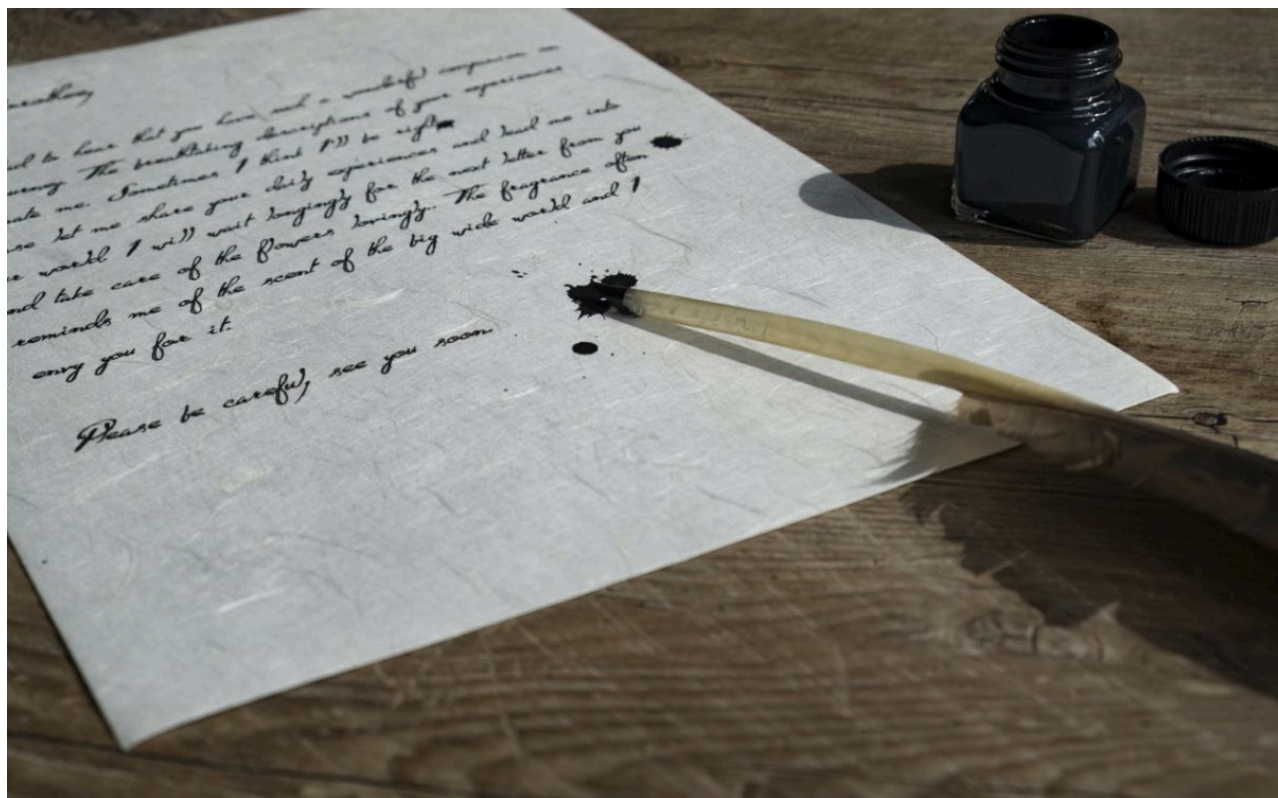 to hear that you have such a wonderful companion on
The breathtaking descriptions of your experiences
me. Sometimes I think I'll be right
let me share your daily experiences and lead me into
world I will wait longingly for the next letter from you
and take care of the flowers lovingly.. The fragrance often
reminds me of the scent of the big wide world and I
envy you for it.
Please be careful, see you soon